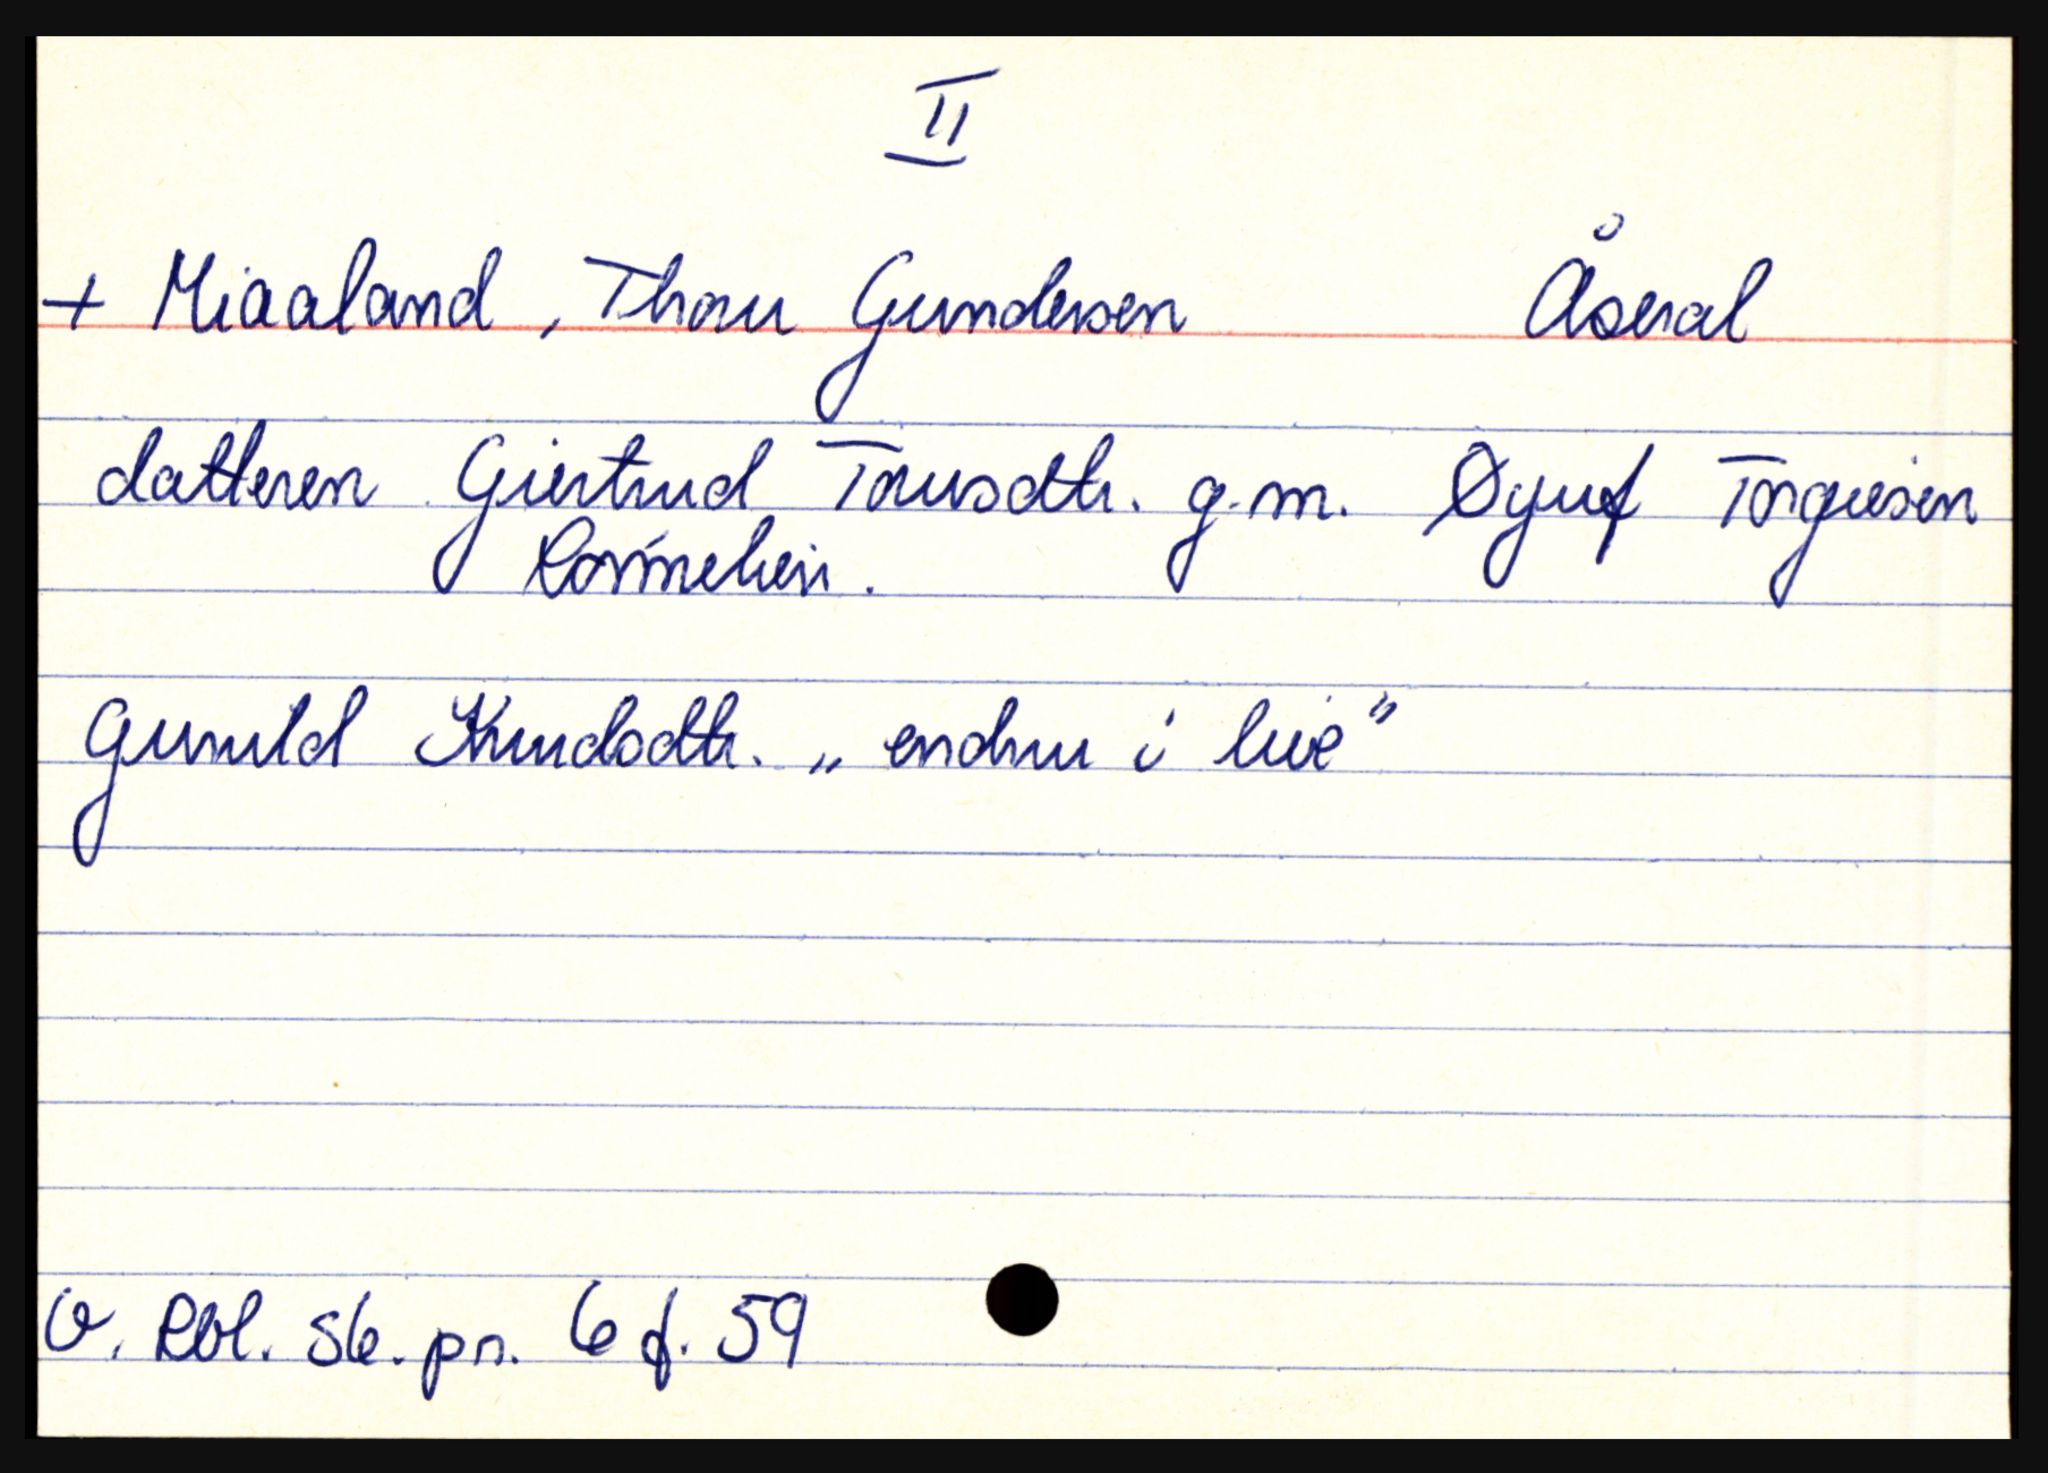 II
+ Miaaland, Thorn Gundersen Åseral
datteren Giertrud Tornsdtr. g.m. Øyuf Torgiesen
Gunild Knudsdtr. „ endnu i live"
V. Rbl. S6. pr. 6 f. 59